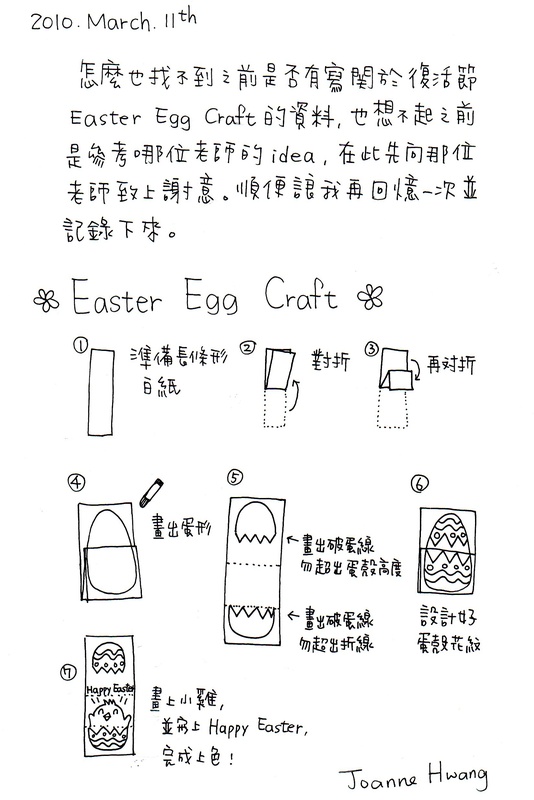 2010. March. 11th
怎麼也找不到之前是否有寫關於復活節
Easter Egg Craft 的資料, 也想不起之前
是參考哪位老師的 idea, 在此先向那位
老師致上謝意。順便讓我再回憶一次並
記錄下來。
Easter Egg Craft
① 準備長條形
白紙
② 對折
③ 再对折
④ 畫出蛋形
⑤ 畫出破蛋線
勿超出蛋殼高度
畫出破蛋線
勿超出折線
⑥ 設計好
蛋殼花紋
⑦ Happy Easter
畫上小雞,
並寫上 Happy Easter,
完成上色!
Joanne Hwang